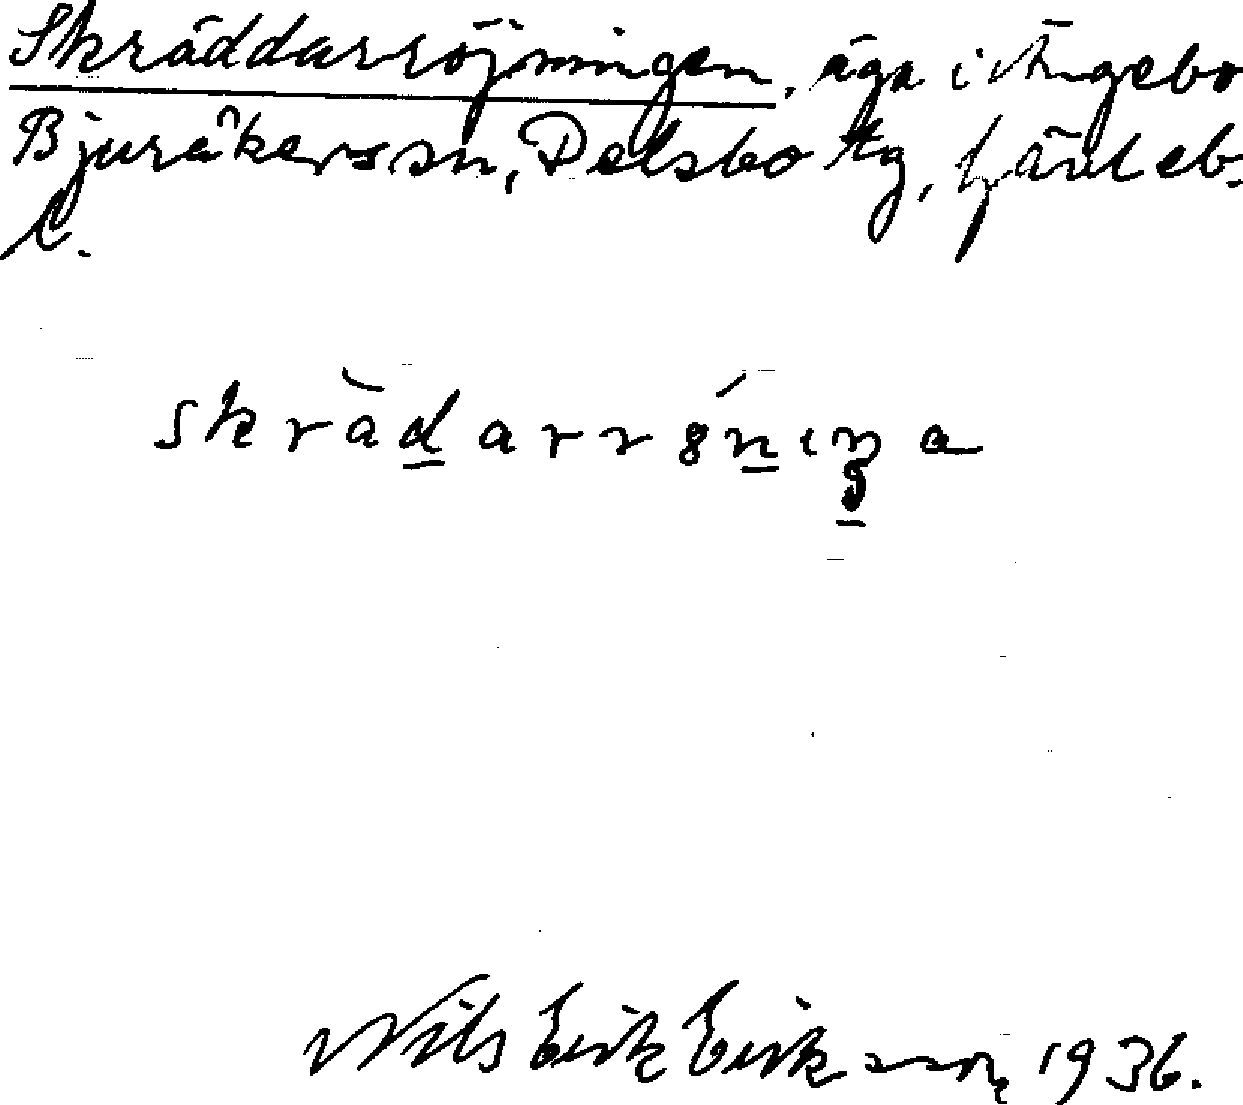 Skräddarröjningen, äga i Ängebo
Bjuråkers sn, Delsbo tg, Gävleb.
l.
skrädarröniŋa
Nils Erik Eriksson 1936.